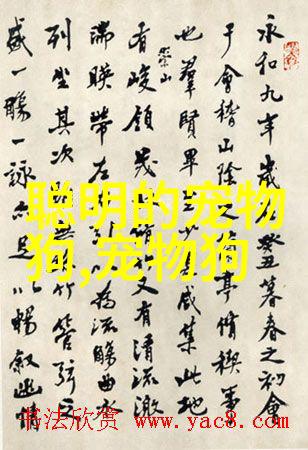 永和九年歲癸丑暮春之初會
于會稽山陰之亭脩稧事
也羣賢畢咸集此地
有崇山峻領茂又有清流激
湍暎帶左為流觴曲水
列坐其次無竹管弦之
盛一觴一詠亦足以暢敘幽情
聪明的宠物
狗,宠物狗
书法欣赏 www.yac8.com